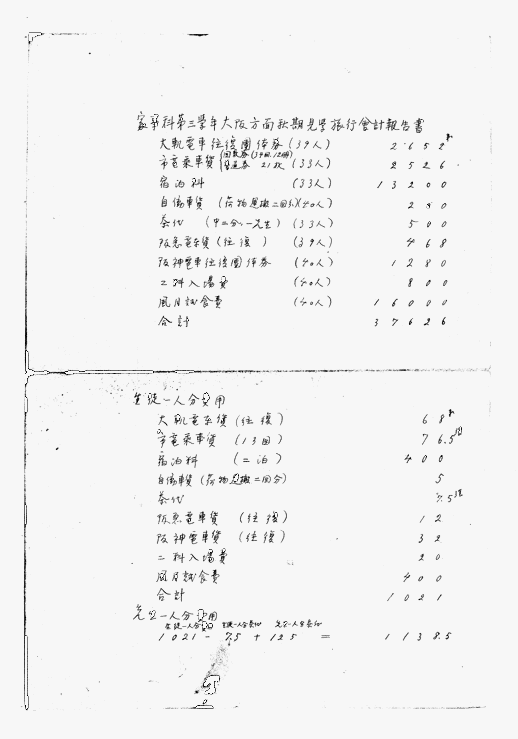 家事科第三學年大阪方面秋期見學旅行會計報告書
大軌電車往復團体券(39人) 2652
市電乘車賃 回数券(39回12冊) 21枚 (33人) 2526
宿泊料 (33人) 13200
自働車賃 (荷物運搬二回分)(40人) 200
茶代 (中二分、一先生) (33人) 500
阪急電車賃(往復) (39人) 468
阪神電車往復團体券 (40人) 1280
二料入場費 (40人) 800
風月試食費 (40人) 16000
合計 37626
生徒一人分費用
大軌電車賃(往復) 68
市電乘車賃 (13回) 76.5
宿泊料 (二泊) 400
自働車賃(荷物運搬二回分) 5
茶代 7.5
阪急電車賃 (往復) 12
阪神電車賃 (往復) 32
二料入場費 20
風月試食費 400
合計 1021
先生一人分費用
生徒一人分費用 生徒一人分茶代 先生一人分茶代
1021 - 7.5 + 125 = 1138.5